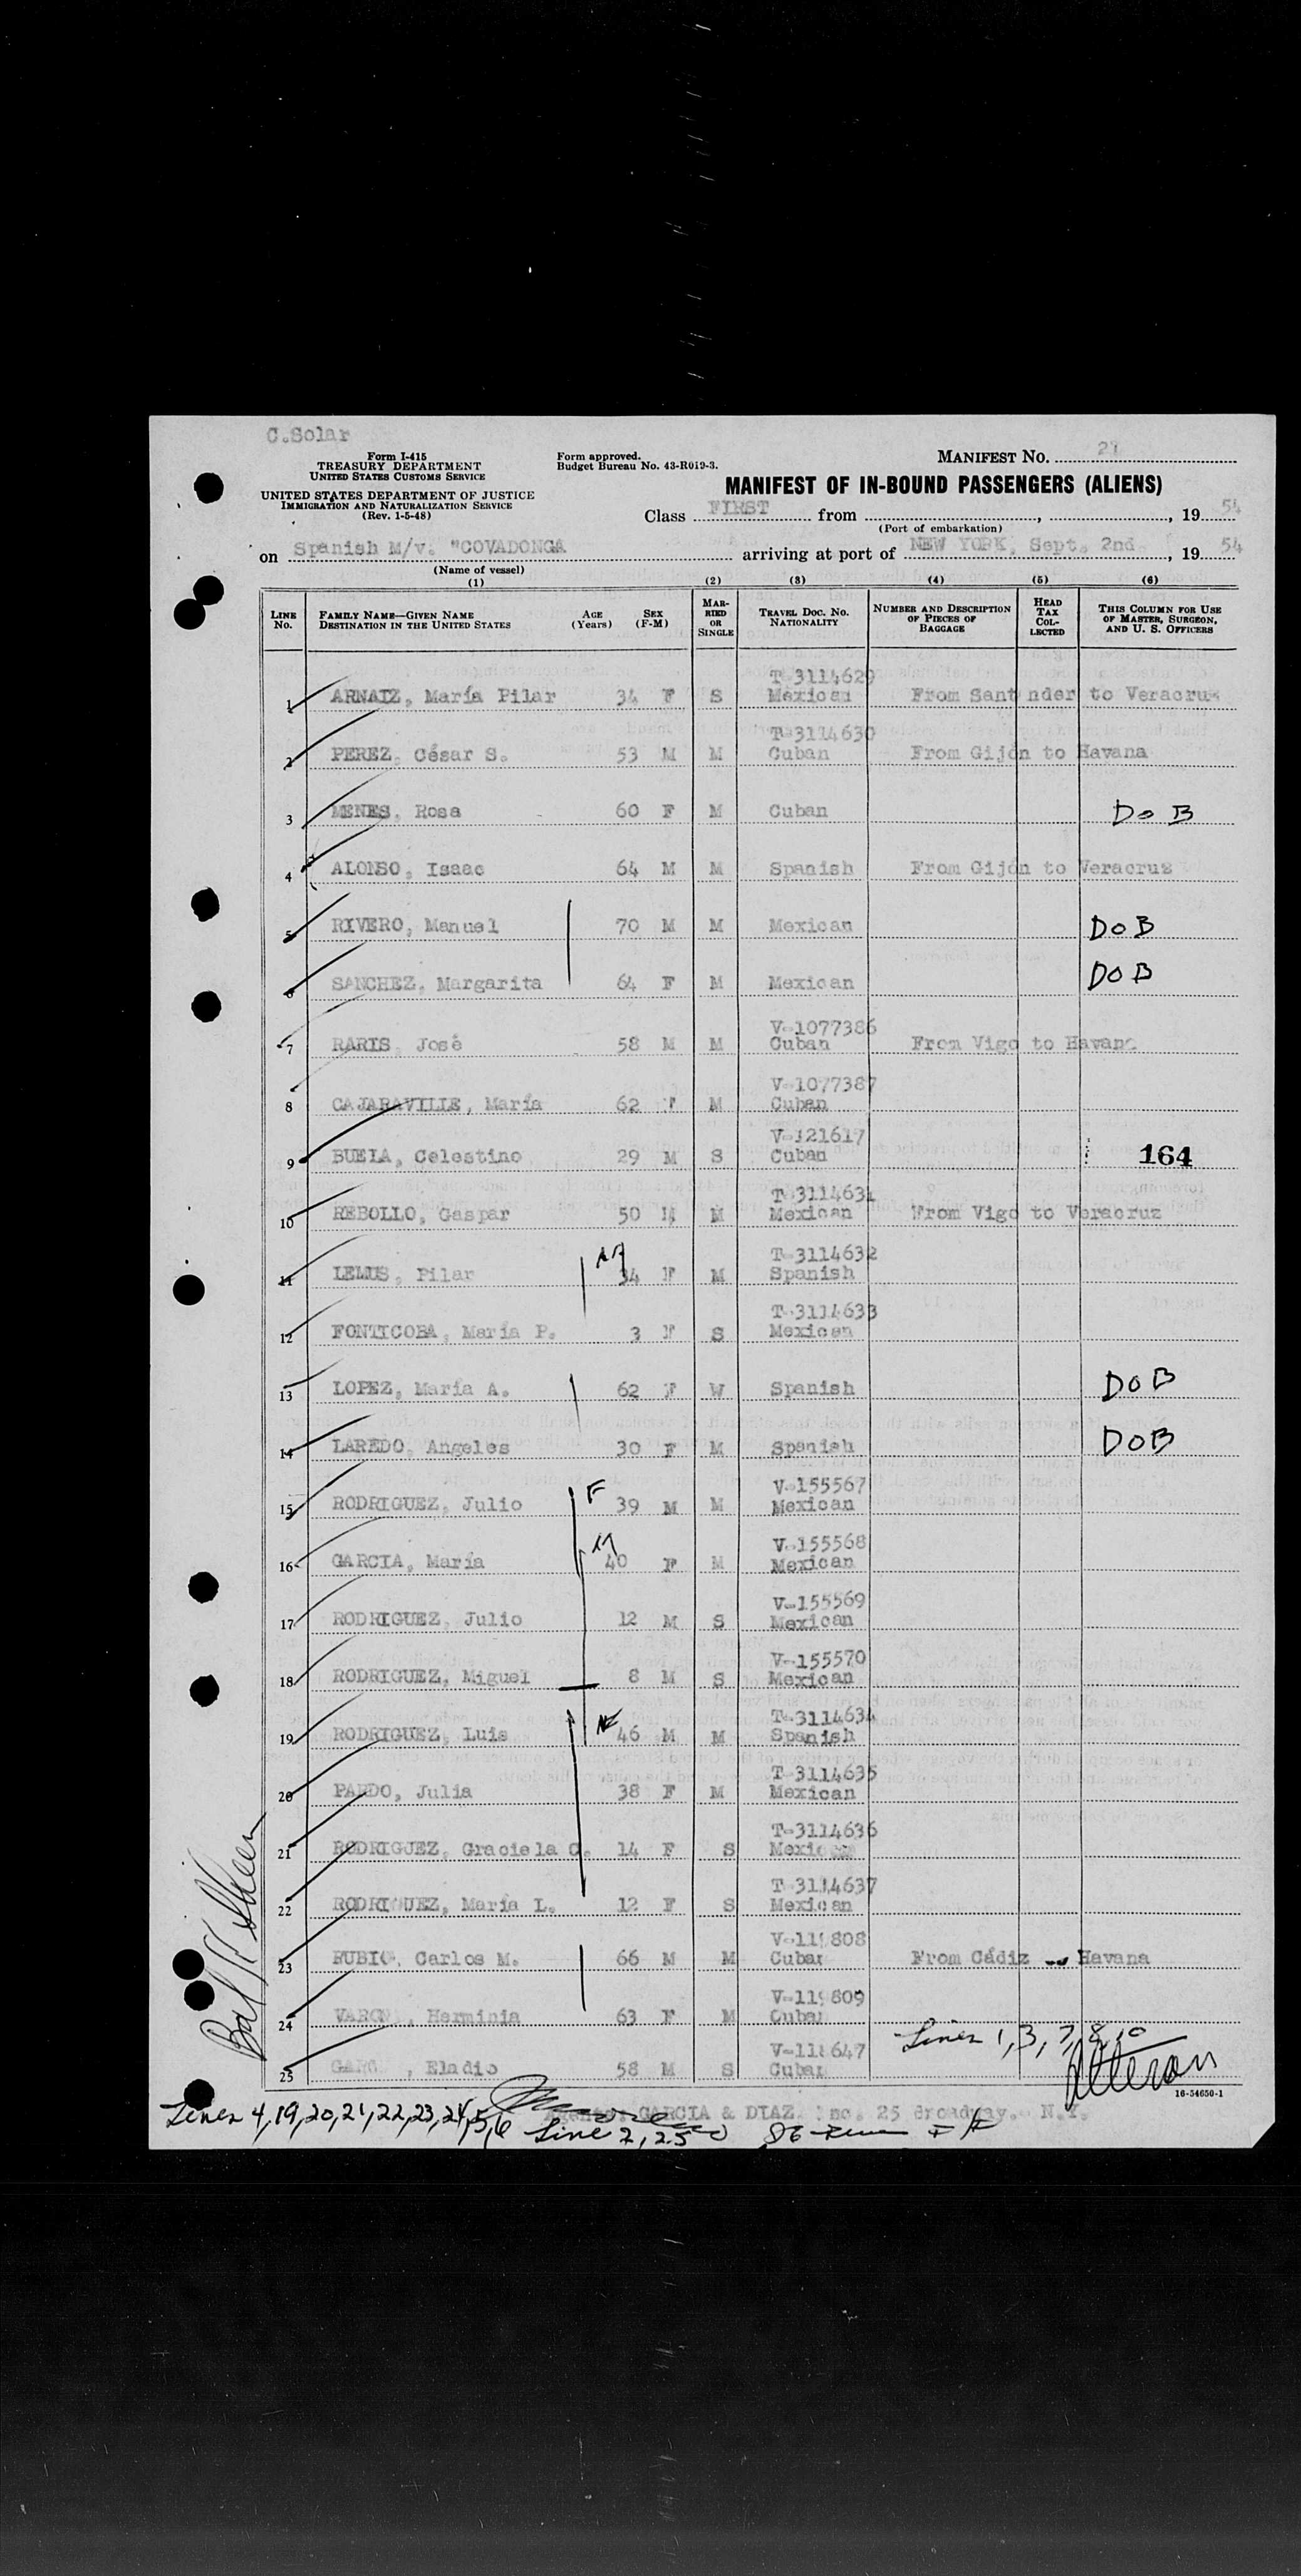 C.Solar
Form I-415
TREASURY DEPARTMENT
UNITED STATES CUSTOMS SERVICE
UNITED STATES DEPARTMENT OF JUSTICE
IMMIGRATION AND NATURALIZATION SERVICE
(Rev. 1-5-48)
Form approved.
Budget Bureau No. 43-R019-3.
MANIFEST No. 21
MANIFEST OF IN-BOUND PASSENGERS (ALIENS)
Class FIRST from , , 19 54
(Port of embarkation)
on Spanish M/v. "COVADONGA arriving at port of NEW YORK, Sept. 2nd. , 19 54
(Name of vessel)
(1) (2) (3) (4) (5) (6)
LINE No. FAMILY NAME—GIVEN NAME DESTINATION IN THE UNITED STATES AGE (Years) SEX (F-M) MARRIED OR SINGLE TRAVEL DOC. NO. NATIONALITY NUMBER AND DESCRIPTION OF PIECES OF BAGGAGE HEAD TAX COLLECTED THIS COLUMN FOR USE OF MASTER, SURGEON, AND U. S. OFFICERS
T-3114629
1 ARNAIZ, María Pilar 34 F S Mexican From Sant nder to Veracruz
T-3114630
2 PEREZ, César S. 53 M M Cuban From Gijón to Havana
3 MENES, Rosa 60 F M Cuban DoB
4 ALONSO, Isaac 64 M M Spanish From Gijón to Veracruz
5 RIVERO, Manuel 70 M M Mexican DOB
6 SANCHEZ, Margarita 64 F M Mexican DOB
V-1077386
7 RARIS, José 58 M M Cuban From Vigo to Havana
V-1077387
8 CAJARAVILLE, María 62 F M Cuban
V-121617
9 BUELA, Celestino 29 M S Cuban 164
T-3114631
10 REBOLLO, Gaspar 50 M M Mexican From Vigo to Veracruz
T-3114632
11 LEMUS, Pilar 34 F M Spanish
T-3114633
12 FONTICOBA, María P. 3 F S Mexican
13 LOPEZ, María A. 62 F W Spanish DOB
14 LAREDO, Angeles 30 F M Spanish DOB
V-155567
15 RODRIGUEZ, Julio F 39 M M Mexican
V-155568
16 GARCIA, María 40 F M Mexican
V-155569
17 RODRIGUEZ, Julio 12 M S Mexican
V-155570
18 RODRIGUEZ, Miguel 8 M S Mexican
T-3114634
19 RODRIGUEZ, Luis 46 M M Spanish
T-3114635
20 PARDO, Julia 38 F M Mexican
T-3114636
21 RODRIGUEZ, Graciela C. 14 F S Mexican
T-3114637
22 RODRIGUEZ, María L. 12 F S Mexican
23 RUBIO, Carlos M. 66 M M Cuban From Cádiz Havana
24 Herminia 63 F M Cuban
25 Eladio 58 M S Cuban
Lines 1, 3, 7, 8, 10
16-54650-1
Agents: GARCIA & DIAZ. Inc. 25 Broadway.- N.Y.
Lines 4,19,20,21,22,23,24,5,6 Line 2, 25